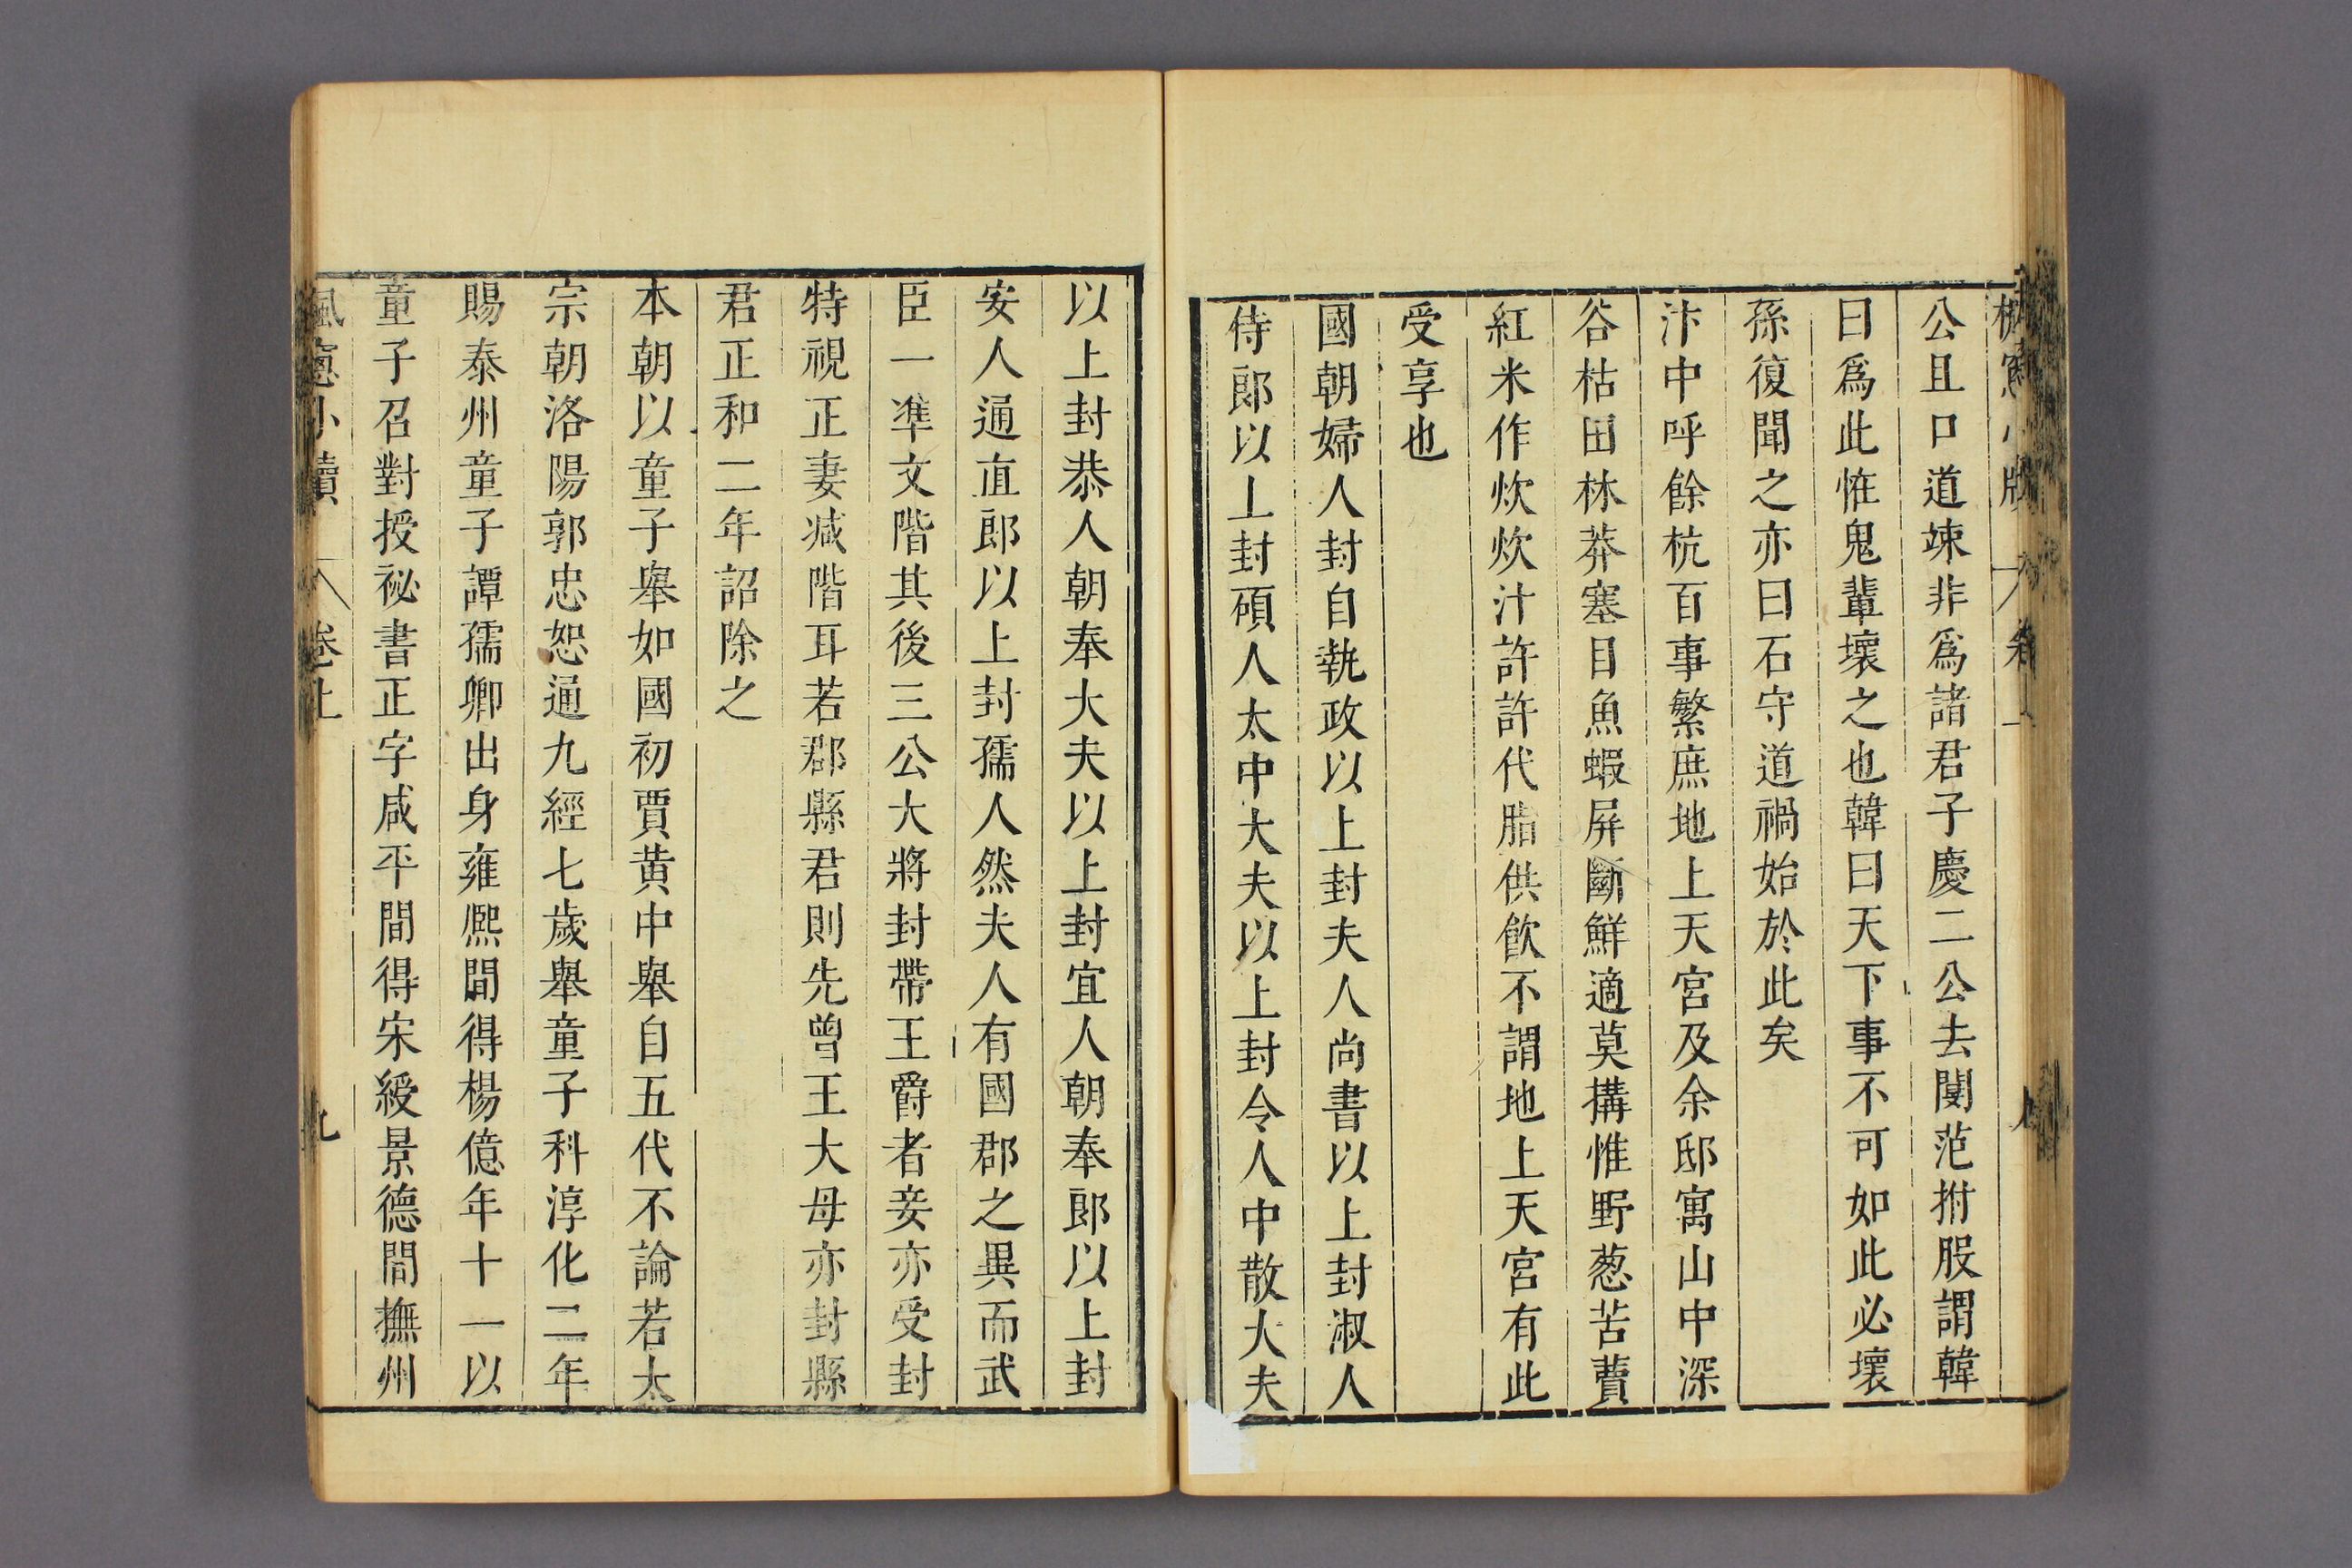 公且口道竦非爲諸君子慶二公去閩范拊股謂韓
曰爲此恠鬼輩壞之也韓曰天下事不可如此必壞
孫復聞之亦曰石守道禍始於此矣
汴中呼餘杭百事繁庶地上天宮及余邸寓山中深
谷枯田林莽塞目魚蝦屏斷鮮適莫搆惟野葱苦蕒
紅米作炊炊汁許許代脂供飲不謂地上天宮有此
受享也
國朝婦人封自執政以上封夫人尚書以上封淑人
侍郎以上封碩人太中大夫以上封令人中散大夫
以上封恭人朝奉大夫以上封宜人朝奉郎以上封
安人通直郎以上封孺人然夫人有國郡之異而武
臣一準文階其後三公大將封帶王爵者妾亦受封
特視正妻减階耳若郡縣君則先曾王大母亦封縣
君正和二年詔除之
本朝以童子舉如國初賈黄中舉自五代不論若太
宗朝洛陽郭忠恕通九經七歲舉童子科淳化二年
賜泰州童子譚孺卿出身雍熙間得楊億年十一以
童子召對授祕書正字咸平間得宋綬景德間撫州
楓窻小牘 卷上 九